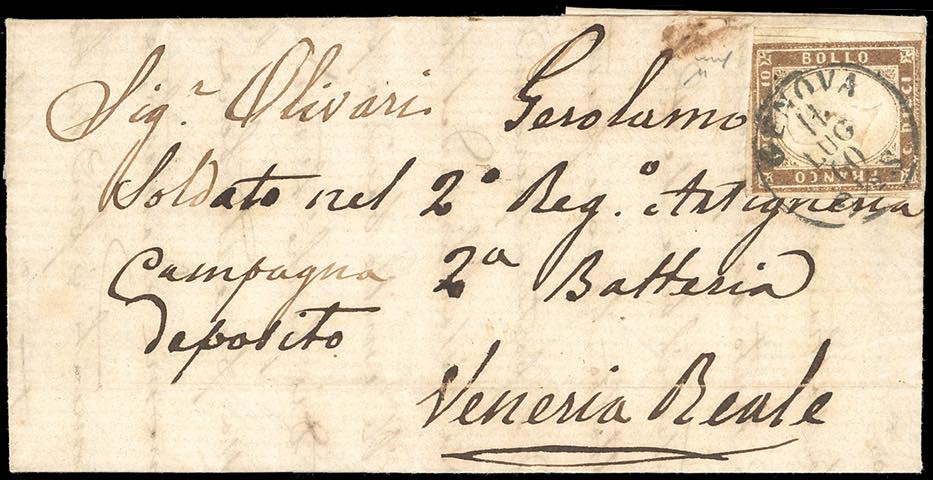 Sig.r Olivari Gerolamo
Soldato nel 2° Reg.° Artiglieria
Campagna 2a Batteria
Deposito
Veneria Reale
BOLLO
C. DIECI
FRANCO
GENOVA
LUG